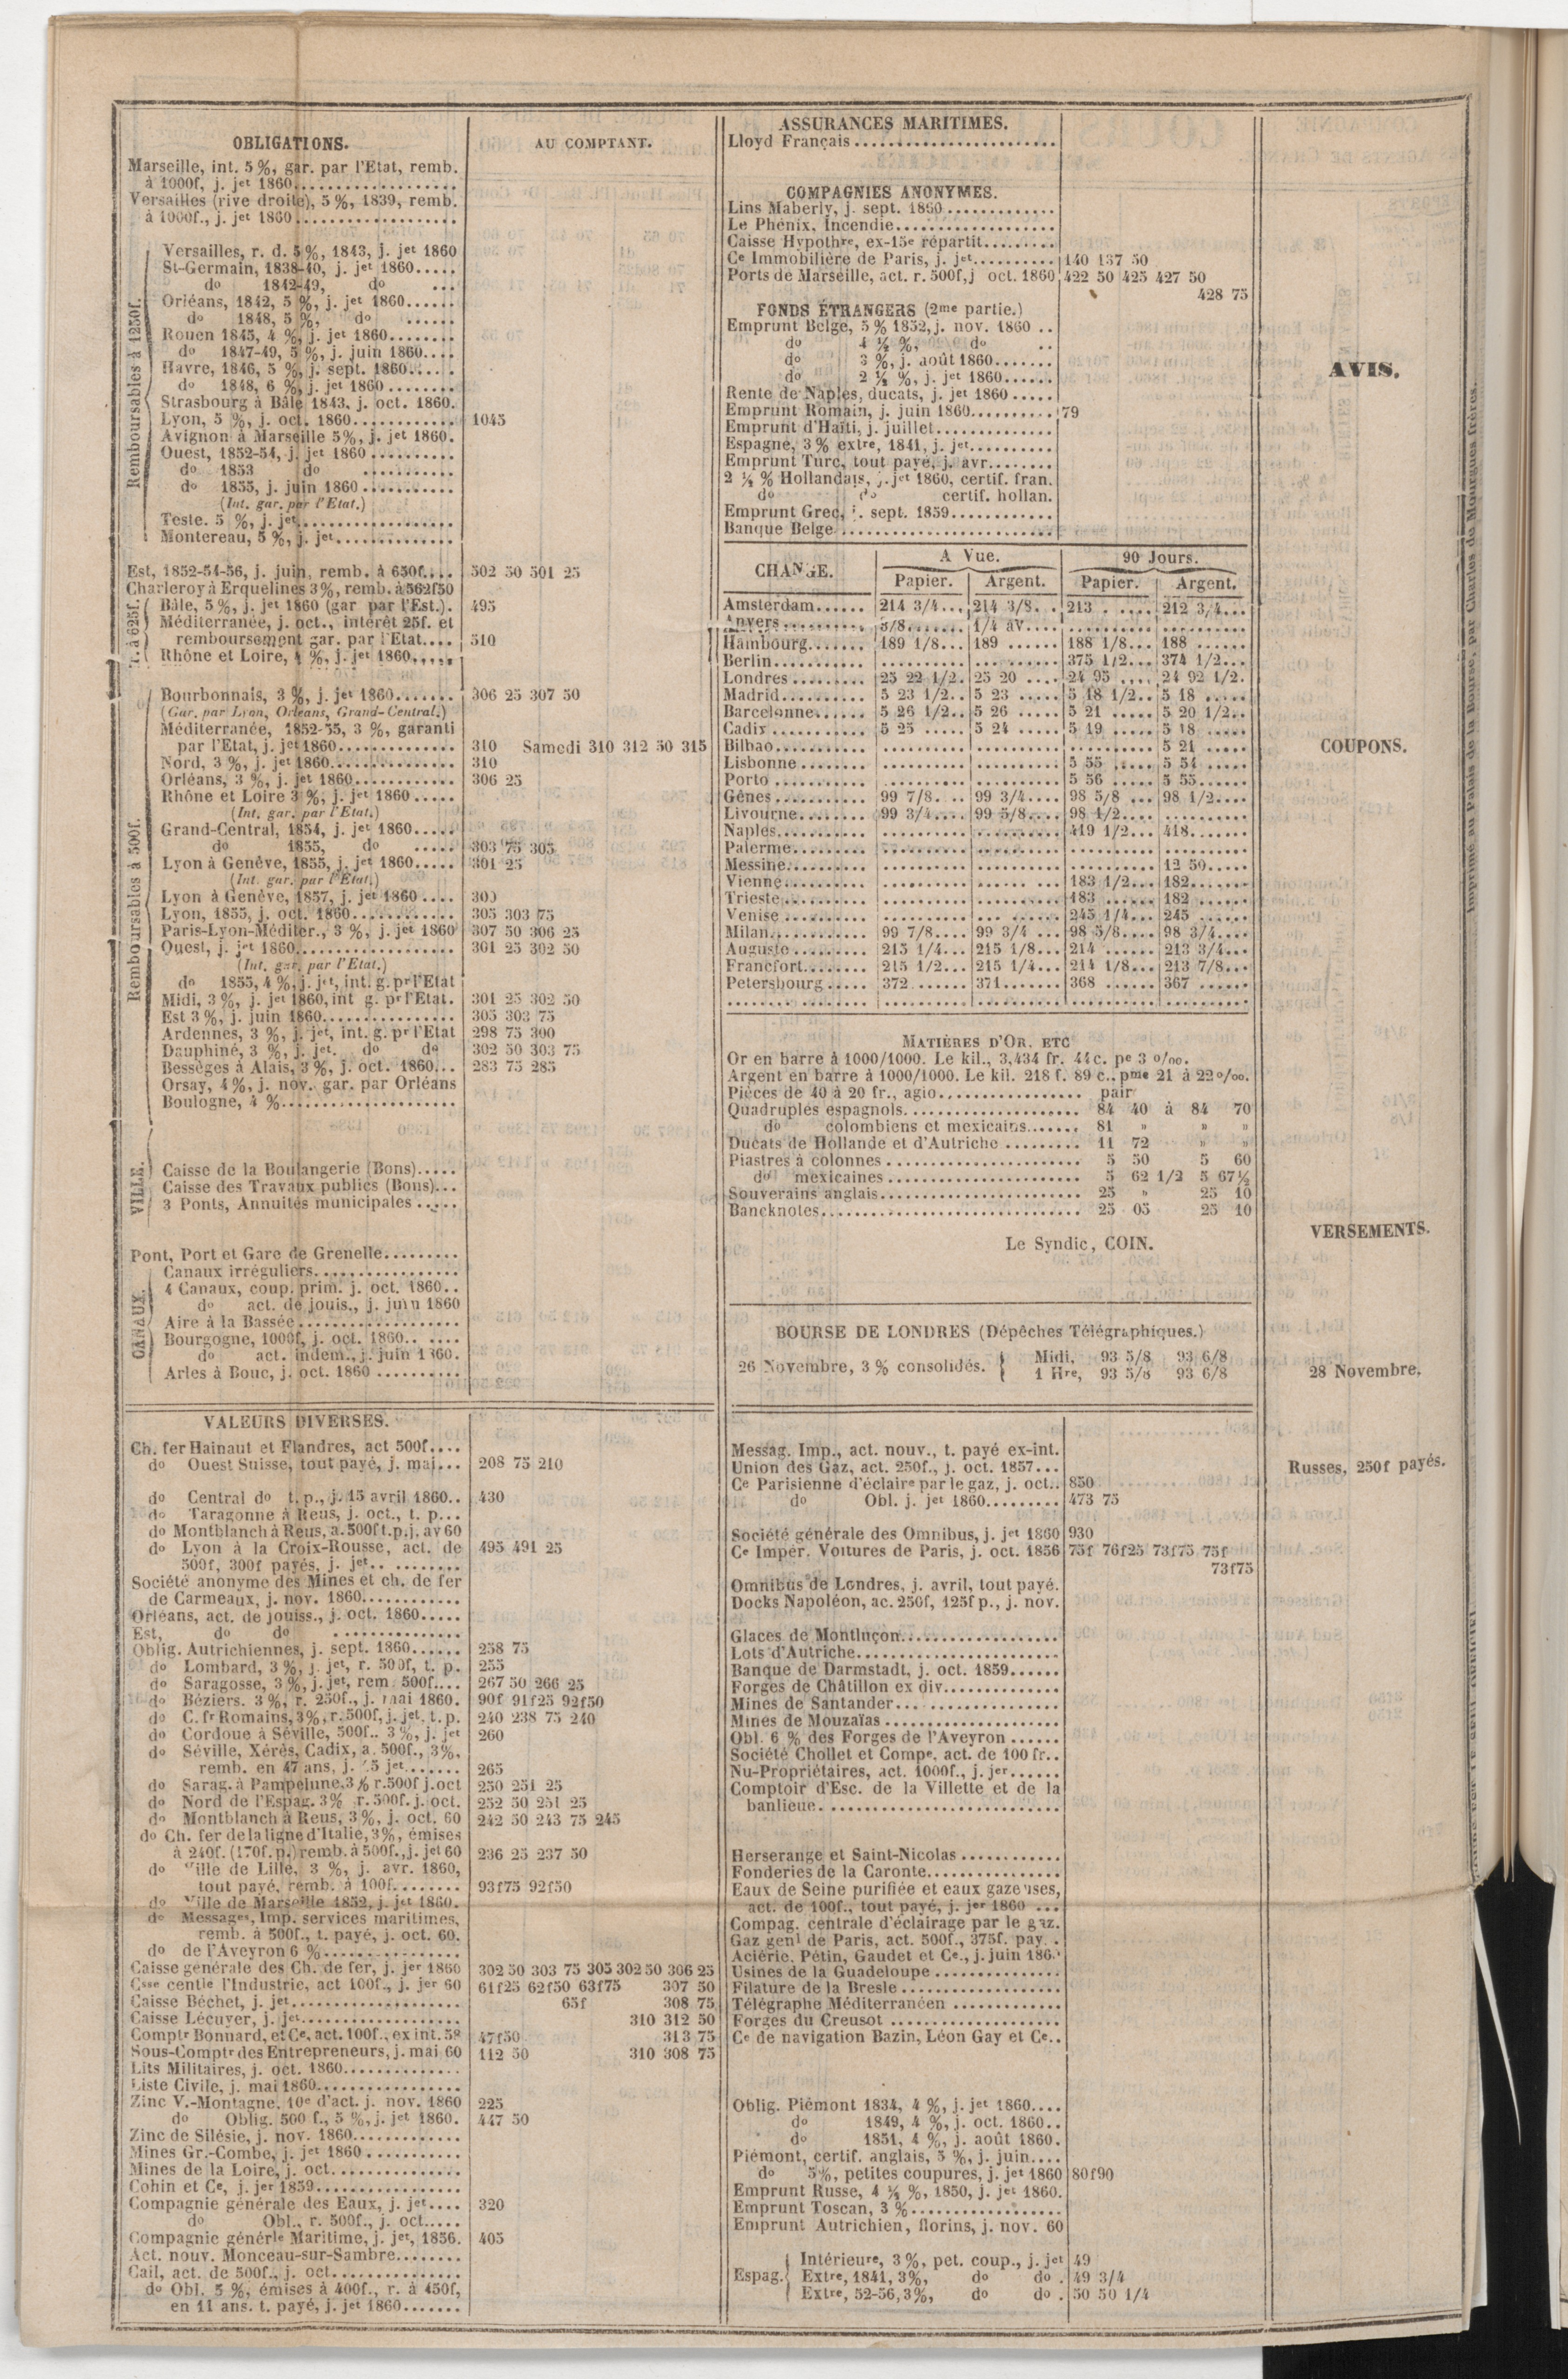 OBLIGATIONS.
AU COMPTANT.
Marseille, int. 5 %, gar. par l'Etat, remb.
à 1000f, j. jet 1860
Versailles (rive droite), 5 %, 1839, remb.
à 1000f., j. jet 1860
Remboursables à 1250f.
Versailles, r. d. 5 %, 1843, j. jet 1860
St-Germain, 1838-40, j. jet 1860
do 1842-49, do
Orléans, 1842, 5 %, j. jet 1860
do 1848, 5 %, do
Rouen 1845, 4 %, j. jet 1860
do 1847-49, 5 %, j. juin 1860
Havre, 1846, 5 %, j. sept. 1860
do 1848, 6 %, j. jet 1860
Strasbourg à Bâle 1843, j. oct. 1860.
Lyon, 5 %, j. oct. 1860 1045
Avignon à Marseille 5 %, j. jet 1860.
Ouest, 1852-54, j. jet 1860
do 1853 do
do 1855, j. juin 1860
(Int. gar. par l'Etat.)
Teste. 5 %, j. jet
Montereau, 5 %, j. jet
Est, 1852-54-56, j. juin, remb. à 650f. 502 50 501 25
Charleroy à Erquelines 3 %, remb. à 562f50
r. à 625f.
Bâle, 5 %, j. jet 1860 (gar par l'Est.). 495
Méditerranée, j. oct., intérêt 25f. et
remboursement gar. par l'Etat 510
Rhône et Loire, 4 %, j. jet 1860
Remboursables à 500f.
Bourbonnais, 3 %, j. jet 1860 306 25 307 50
(Gar. par Lyon, Orléans, Grand-Central.)
Méditerranée, 1852-55, 3 %, garanti
par l'Etat, j. jet 1860 310 Samedi 310 312 50 315
Nord, 3 %, j. jet 1860 310
Orléans, 3 %, j. jet 1860 306 25
Rhône et Loire 3 %, j. jet 1860
(Int. gar. par l'Etat.)
Grand-Central, 1854, j. jet 1860
do 1855, do 303 75 305
Lyon à Genève, 1855, j. jet 1860 301 25
(Int. gar. par l'Etat.)
Lyon à Genève, 1857, j. jet 1860 300
Lyon, 1855, j. oct. 1860 305 303 75
Paris-Lyon-Méditer., 3 %, j. jet 1860 307 50 306 25
Ouest, j. jet 1860 301 25 302 50
(Int. gar. par l'Etat.)
do 1855, 4 %, j. jet, int. g. pr l'Etat
Midi, 3 %, j. jet 1860, int g. pr l'Etat. 301 25 302 50
Est 3 %, j. juin 1860 305 303 75
Ardennes, 3 %, j. jet, int. g. pr l'Etat 298 75 300
Dauphiné, 3 %, j. jet. do do 302 50 303 75
Bessèges à Alais, 3 %, j. oct. 1860 283 75 285
Orsay, 4 %, j. nov. gar. par Orléans
Boulogne, 4 %
VILLE.
Caisse de la Boulangerie (Bons)
Caisse des Travaux publics (Bons)
3 Ponts, Annuités municipales
Pont, Port et Gare de Grenelle
CANAUX.
Canaux irréguliers
4 Canaux, coup. prim. j. oct. 1860
do act. de jouis., j. juin 1860
Aire à la Bassée
Bourgogne, 1000f, j. oct. 1860
do act. indem., j. juin 1860.
Arles à Bouc, j. oct. 1860
VALEURS DIVERSES.
Ch. fer Hainaut et Flandres, act 500f
do Ouest Suisse, tout payé, j. mai 208 75 210
do Central do t. p., j. 15 avril 1860 430
do Taragonne à Reus, j. oct., t. p.
do Montblanch à Reus, a. 500f t. p. j. av 60
do Lyon à la Croix-Rousse, act. de 495 491 25
500f, 300f payés, j. jet
Société anonyme des Mines et ch. de fer
de Carmeaux, j. nov. 1860
Orléans, act. de jouiss., j. oct. 1860
Est, do do
Oblig. Autrichiennes, j. sept. 1860 258 75
do Lombard, 3 %, j. jet, r. 500f, t. p. 255
do Saragosse, 3 %, j. jet, rem 500f 267 50 266 25
do Béziers. 3 %, r. 250f., j. mai 1860. 90f 91f25 92f50
do C. fr Romains, 3 %, r. 500f, j. jet, t. p. 240 238 75 240
do Cordoue à Séville, 500f.. 3 %, j. jet 260
do Séville, Xérès, Cadix, a. 500f., 3 %,
remb. en 47 ans, j. 15 jet 265
do Sarag. à Pampelune, 3 % r. 500f j. oct 250 251 25
do Nord de l'Espag. 3 % r. 500f. j. oct. 252 50 251 25
do Montblanch à Reus, 3 %, j. oct. 60 242 50 243 75 245
do Ch. fer de la ligne d'Italie, 3 %, émises
à 240f. (170f. p.) remb. à 500f., j. jet 60 236 25 237 50
do Ville de Lille, 3 %, j. avr. 1860,
tout payé, remb. à 100f 93f75 92f50
do Ville de Marseille 1852, j. jet 1860.
do Messages, Imp. services maritimes,
remb. à 500f., t. payé, j. oct. 60.
do de l'Aveyron 6 %
Caisse générale des Ch. de fer, j. jer 1860 302 50 303 75 305 302 50 306 25
Csse centle l'Industrie, act 100f., j. jer 60 61f25 62f50 63f75 307 50
Caisse Béchet, j. jet 65f 308 75
Caisse Lécuyer, j. jet 310 312 50
Comptr Bonnard, et Ce, act. 100f., ex int. 58 47f50 313 75
Sous-Comptr des Entrepreneurs, j. mai 60 112 50 310 308 75
Lits Militaires, j. oct. 1860
Liste Civile, j. mai 1860
Zinc V.-Montagne. 10e d'act. j. nov. 1860 225
do Oblig. 500 f., 5 %, j. jet 1860. 447 50
Zinc de Silésie, j. nov. 1860
Mines Gr.-Combe, j. jet 1860
Mines de la Loire, j. oct
Cohin et Ce, j. jer 1859
Compagnie générale des Eaux, j. jet 320
do Obl., r. 500f., j. oct
Compagnie générle Maritime, j. jet, 1856. 405
Act. nouv. Monceau-sur-Sambre
Cail, act. de 500f., j. oct
do Obl. 5 %, émises à 400f., r. à 450f,
en 11 ans. t. payé, j. jet 1860
ASSURANCES MARITIMES.
Lloyd Français
COMPAGNIES ANONYMES.
Lins Maberly, j. sept. 1860
Le Phénix, Incendie
Caisse Hypothre, ex-15e répartit
Ce Immobilière de Paris, j. jet 140 137 50
Ports de Marseille, act. r. 500f, j oct. 1860 422 50 425 427 50
428 75
FONDS ÉTRANGERS (2me partie.)
Emprunt Belge, 5 % 1852, j. nov. 1860
do 4 ½ %, do
do 3 %, j. août 1860
do 2 ½ %, j. jet 1860
Rente de Naples, ducats, j. jet 1860
Emprunt Romain, j. juin 1860 79
Emprunt d'Haïti, j. juillet
Espagne, 3 % extre, 1841, j. jet
Emprunt Turc, tout payé, j. avr
2 ½ % Hollandais, j. jet 1860, certif. fran.
do do certif. hollan.
Emprunt Grec, j. sept. 1859
Banque Belge
CHANGE. A Vue. 90 Jours.
Papier. Argent. Papier. Argent.
Amsterdam 214 3/4 214 3/8 213 212 3/4
Anvers 5/8 1/4 av
Hambourg 189 1/8 189 188 1/8 188
Berlin 375 1/2 374 1/2
Londres 25 22 1/2 25 20 24 95 24 92 1/2
Madrid 5 23 1/2 5 23 5 18 1/2 5 18
Barcelonne 5 26 1/2 5 26 5 21 5 20 1/2
Cadix 5 25 5 24 5 19 5 18
Bilbao 5 21
Lisbonne 5 55 5 54
Porto 5 56 5 55
Gênes 99 7/8 99 3/4 98 5/8 98 1/2
Livourne 99 3/4 99 5/8 98 1/2
Naples 419 1/2 418
Palerme
Messine 12 50
Vienne 183 1/2 182
Trieste 183 182
Venise 245 1/4 245
Milan 99 7/8 99 3/4 98 5/8 98 3/4
Auguste 215 1/4 215 1/8 214 213 3/4
Francfort 215 1/2 215 1/4 214 1/8 213 7/8
Petersbourg 372 371 368 367
MATIÈRES D'OR, ETC
Or en barre à 1000/1000. Le kil., 3,434 fr. 44 c. pe 3 o/oo.
Argent en barre à 1000/1000. Le kil. 218 f. 89 c., pme 21 à 22 o/oo.
Pièces de 40 à 20 fr., agio pair
Quadruples espagnols 84 40 à 84 70
do colombiens et mexicains 81 » » »
Ducats de Hollande et d'Autriche 11 72 » »
Piastres à colonnes 5 50 5 60
do mexicaines 5 62 1/2 5 67½
Souverains anglais 25 » 25 10
Bancknotes 25 05 25 10
Le Syndic, COIN.
BOURSE DE LONDRES (Dépêches Télégraphiques.)
26 Novembre, 3 % consolidés. { Midi, 93 5/8 93 6/8
1 Hre, 93 5/8 93 6/8
Messag. Imp., act. nouv., t. payé ex-int.
Union des Gaz, act. 250f., j. oct. 1857
Ce Parisienne d'éclaire par le gaz, j. oct. 850
do Obl. j. jet 1860 473 75
Société générale des Omnibus, j. jet 1860 930
Ce Impér. Voitures de Paris, j. oct. 1856 75f 76f25 73f75 75f
73f75
Omnibus de Londres, j. avril, tout payé.
Docks Napoléon, ac. 250f, 125f p., j. nov.
Glaces de Montluçon
Lots d'Autriche
Banque de Darmstadt, j. oct. 1859
Forges de Châtillon ex div
Mines de Santander
Mines de Mouzaïas
Obl. 6 % des Forges de l'Aveyron
Société Chollet et Compe, act. de 100 fr.
Nu-Propriétaires, act. 1000f., j. jer
Comptoir d'Esc. de la Villette et de la
banlieue
Herserange et Saint-Nicolas
Fonderies de la Caronte
Eaux de Seine purifiée et eaux gazeuses,
act. de 100f., tout payé, j. jer 1860
Compag. centrale d'éclairage par le gaz.
Gaz genl de Paris, act. 500f., 375f. pay.
Aciérie, Pétin, Gaudet et Ce., j. juin 1860
Usines de la Guadeloupe
Filature de la Bresle
Télégraphe Méditerranéen
Forges du Creusot
Ce de navigation Bazin, Léon Gay et Ce
Oblig. Piémont 1834, 4 %, j. jet 1860
do 1849, 4 %, j. oct. 1860
do 1851, 4 %, j. août 1860.
Piémont, certif. anglais, 5 %, j. juin
do 5 %, petites coupures, j. jet 1860 80f90
Emprunt Russe, 4 ½ %, 1850, j. jet 1860.
Emprunt Toscan, 3 %
Emprunt Autrichien, florins, j. nov. 60
Espag. { Intérieure, 3 %, pet. coup., j. jet 49
Extre, 1841, 3 %, do do 49 3/4
Extre, 52-56, 3 %, do do 50 50 1/4
AVIS.
COUPONS.
VERSEMENTS.
28 Novembre.
Russes, 250f payés.
Imprimé au Palais de la Bourse, par Charles de Mourgues frères.